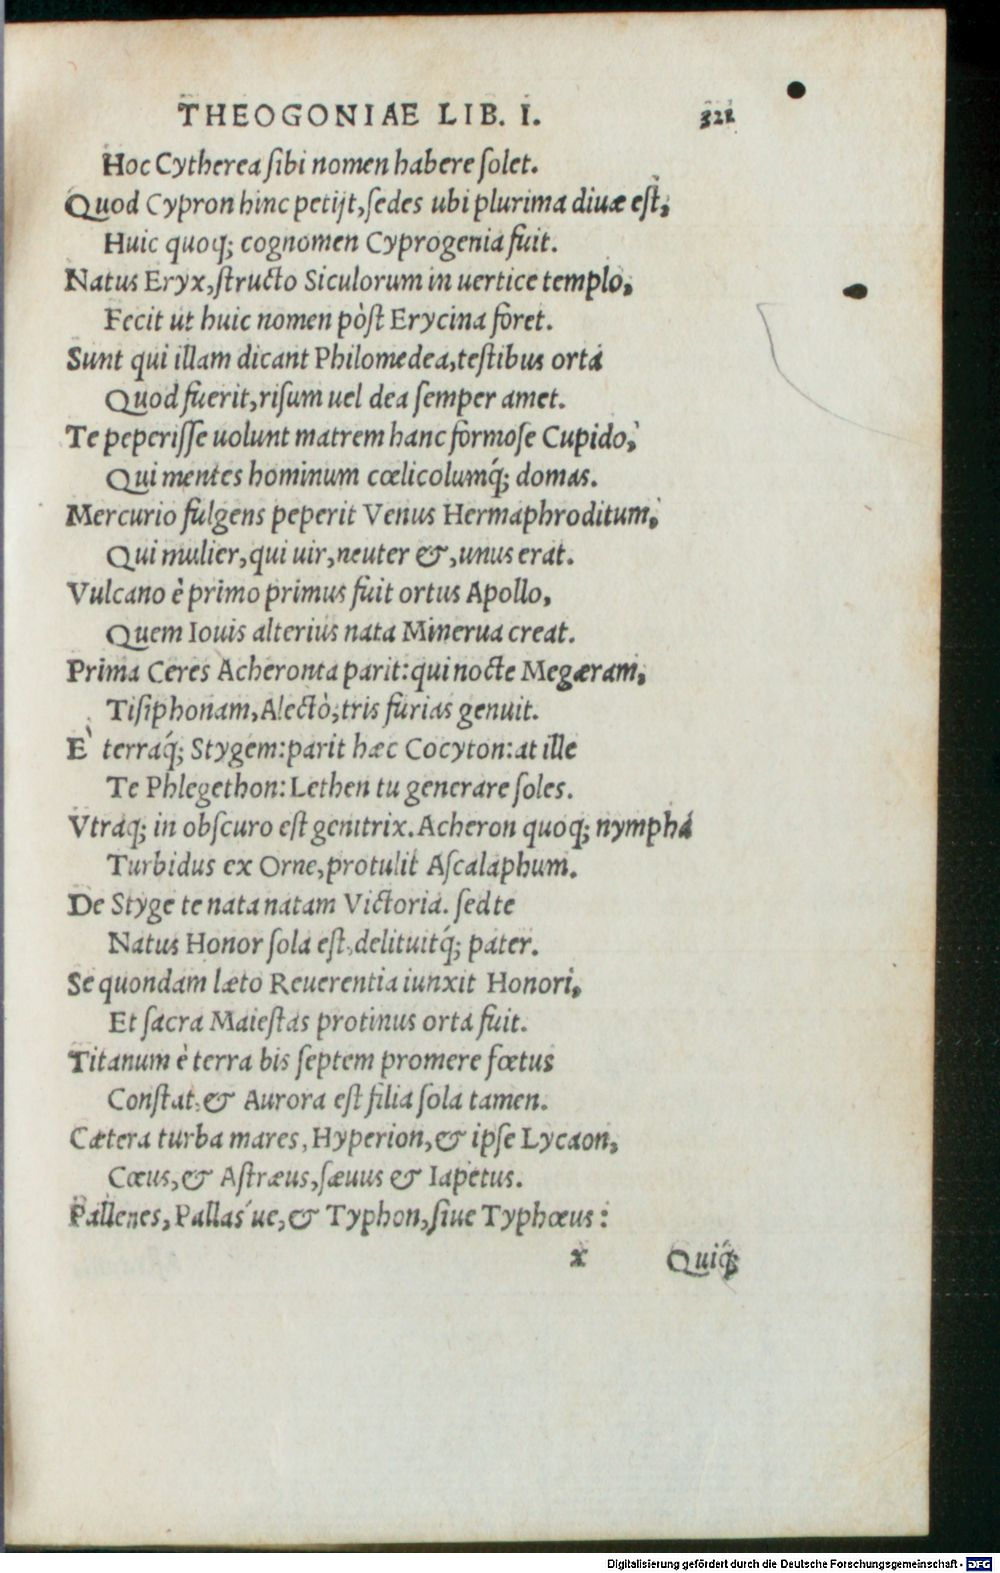 THEOGONIAE LIB. I. 321
Hoc Cytherea ſibi nomen habere ſolet.
Quod Cypron hinc petijt, ſedes ubi plurima diuæ eſt,
Huic quoq; cognomen Cyprogenia fuit.
Natus Eryx, ſtructo Siculorum in uertice templo,
Fecit ut huic nomen pòſt Erycina foret.
Sunt qui illam dicant Philomedea, teſtibus orta
Quod fuerit, riſum uel dea ſemper amet.
Te peperiſſe uolunt matrem hanc formoſe Cupido,
Qui mentes hominum cœlicolumq́; domas.
Mercurio fulgens peperit Venus Hermaphroditum,
Qui mulier, qui uir, neuter &, unus erat.
Vulcano è primo primus fuit ortus Apollo,
Quem Iouis alterius nata Minerua creat.
Prima Ceres Acheronta parit: qui nocte Megæram,
Tiſiphonam, Alectò, tris furias genuit.
E' terraq́; Stygem: parit hæc Cocyton: at ille
Te Phlegethon: Lethen tu generare ſoles.
Vtraq; in obſcuro eſt genitrix. Acheron quoq; nympha
Turbidus ex Orne, protulit Aſcalaphum.
De Styge te nata natam Victoria. ſed te
Natus Honor ſola eſt, delituitq́; pater.
Se quondam læto Reuerentia iunxit Honori,
Et ſacra Maieſtas protinus orta fuit.
Titanum è terra bis ſeptem promere fœtus
Conſtat, & Aurora eſt filia ſola tamen.
Cætera turba mares, Hyperion, & ipſe Lycaon,
Cœus, & Aſtræus, ſæuus & Iapetus.
Pallenes, Pallas'ue, & Typhon, ſiue Typhœus:
x Quiq́;
Digitalisierung gefördert durch die Deutsche Forschungsgemeinschaft - DFG